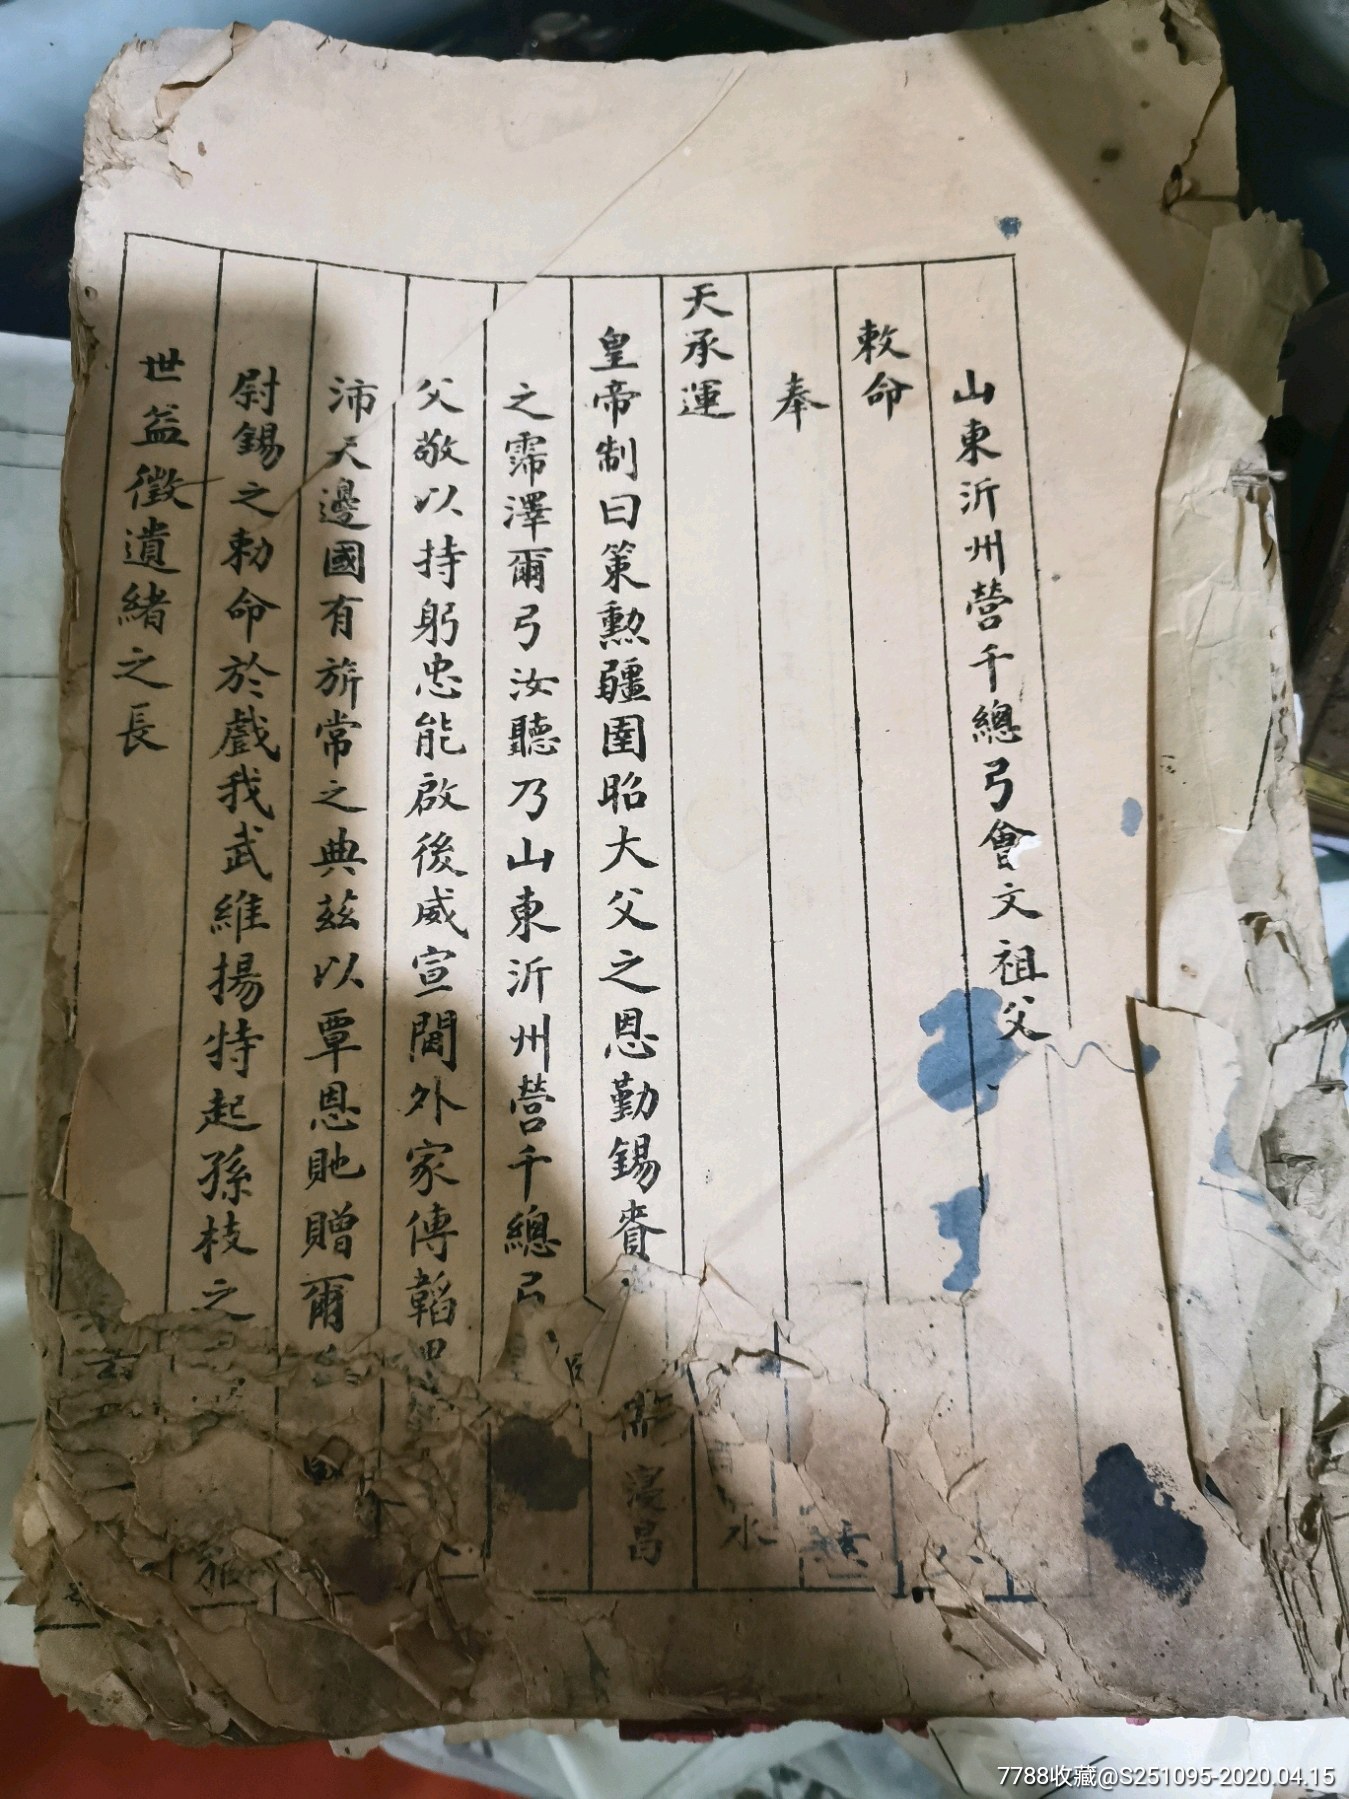 山東沂州營千總弓會文祖父
敕命
奉
天承運
皇帝制曰策勲疆圉昭大父之恩勤錫賚
之霈澤爾弓汝聽乃山東沂州營千總弓
父敬以持躬忠能啟後威宣閫外家傳韜
沛天邊國有旂常之典茲以覃恩貤贈爾
尉錫之勅命於戲我武維揚特起孫枝之
世益徵遺緒之長
寖昌
水
7788收藏@S251095-2020.04.15